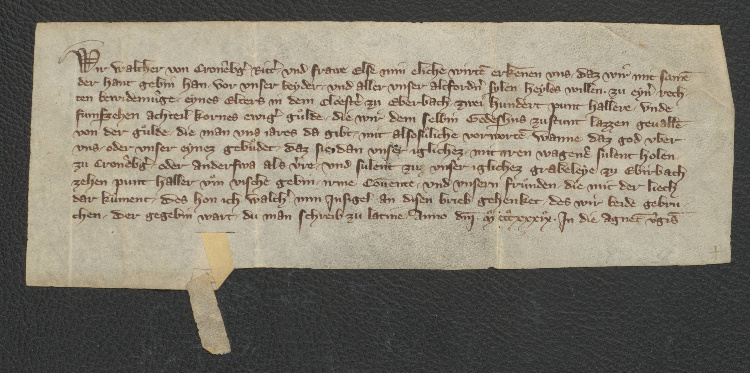 Wir walther von Cronēbg̃ Ritt̃ vnd frawe Else min elich̃e wirtē erkēnen vns daz wir mit samē
der hant gebin han vor vnser beyder vnd aller vnser altfordñ selen heyles willen zu eyñ rech
ten bewidemūge eynes elters in dem cloestẽ zu Eberbach zwei hundert punt hallere vnde
funfzehen achteil kornes ewig̃ gulde die wir dem selbin Godeshus zustunt lazzen geuallē
von der gulde die man vns iares da gibt mit alsosuliche vorworte wanne daz god vber
vns oder vnser eynez gebudet daz sie dan vnser iglichez mit iren wagenē sulent holen
zu Cronēbg̃ oder anderswa als v̾re vnd sulent zu vnser iglichez grabeleye zu Ebirbach
zehen punt haller vm vische gebin irme Couente vnd vnsern frunden die mit der liech
dar kument des hon ich walth̃ min Insigel an disen brieb gehenket des wir beide gebru
chen der gegebin wart du man schreib zu latine Anno dn̄i m̊ ccc̊ xxxix In die agnet̃ v̾gis